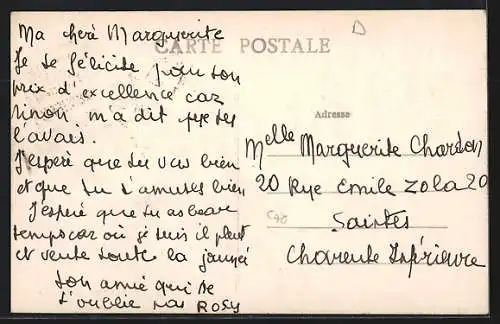 Ma cherè Marguerite
CARTE POSTALE
Je te félicite pour ton
prix d'excellence car
Ninon m'a dit que tu
l'avais.
J'espère que tu vas bien
et que tu t'amuses bien
J'espère que tu as beau
temps car où je suis il pleut
et vente toute la journée
ton amie qui ne
t'oublie pas Rosy
Adresse
Melle Marguerite Chardon
20 Rue Emile Zola 20
Saintes
Charente Inférieure